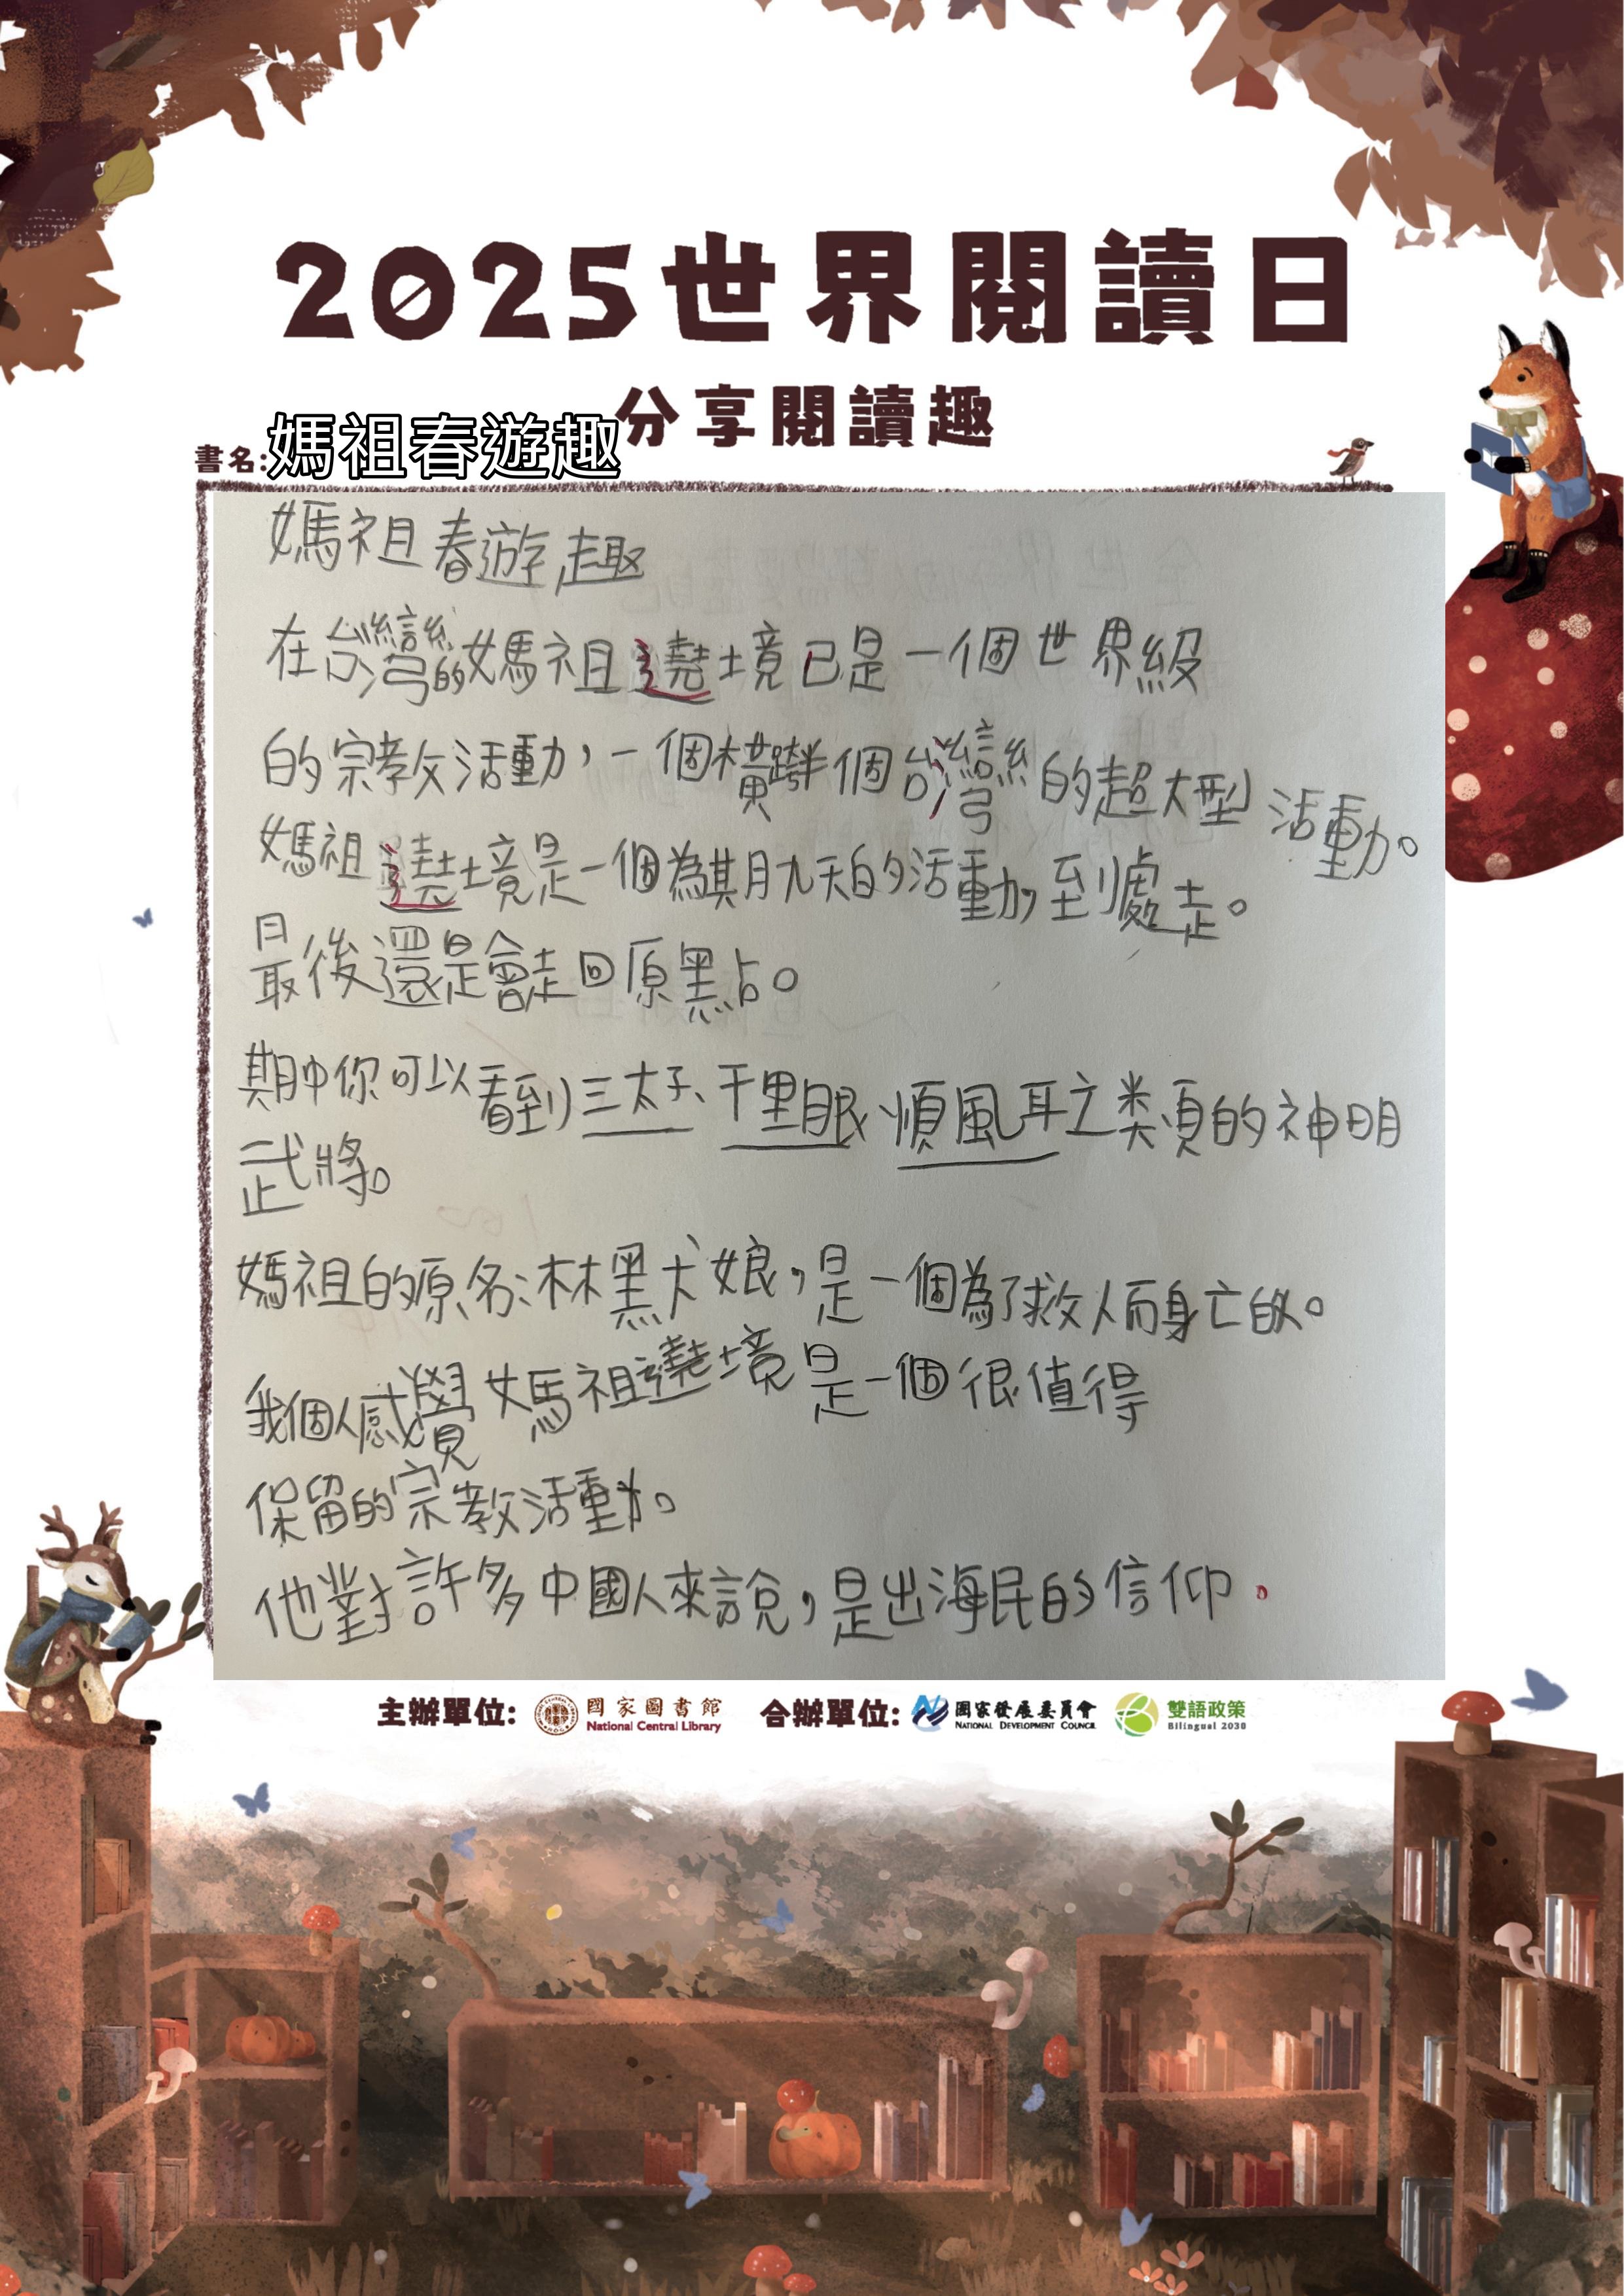 2025世界閱讀日
分享閱讀趣
書名:媽祖春遊趣
媽祖春遊趣
在台灣的媽祖遶境已是一個世界級
的宗教活動，一個橫跨半個台灣的超大型活動。
媽祖遶境是一個為其月九天的活動，到處走。
最後還是會走回原點。
期中你可以看到三太子、千里眼、順風耳之類的神明
武將。
媽祖的原名:林默娘，是一個為了救人而身亡的。
我個人感覺媽祖遶境是一個很值得
保留的宗教活動。
他對許多中國人來說，是出海民的信仰.
主辦單位: 國家圖書館 National Central Library 合辦單位: 國家發展委員會 NATIONAL DEVELOPMENT COUNCIL 雙語政策 Bilingual 2030